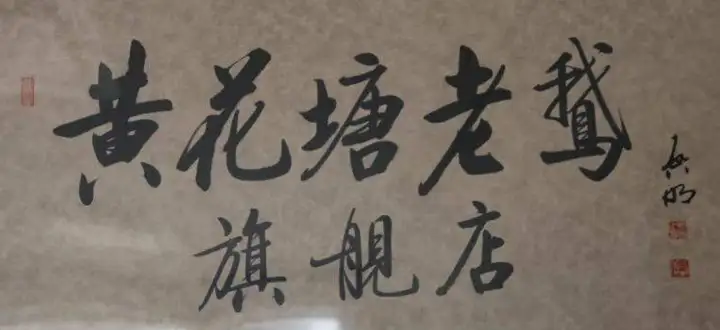 黄花塘老鹅
旗舰店